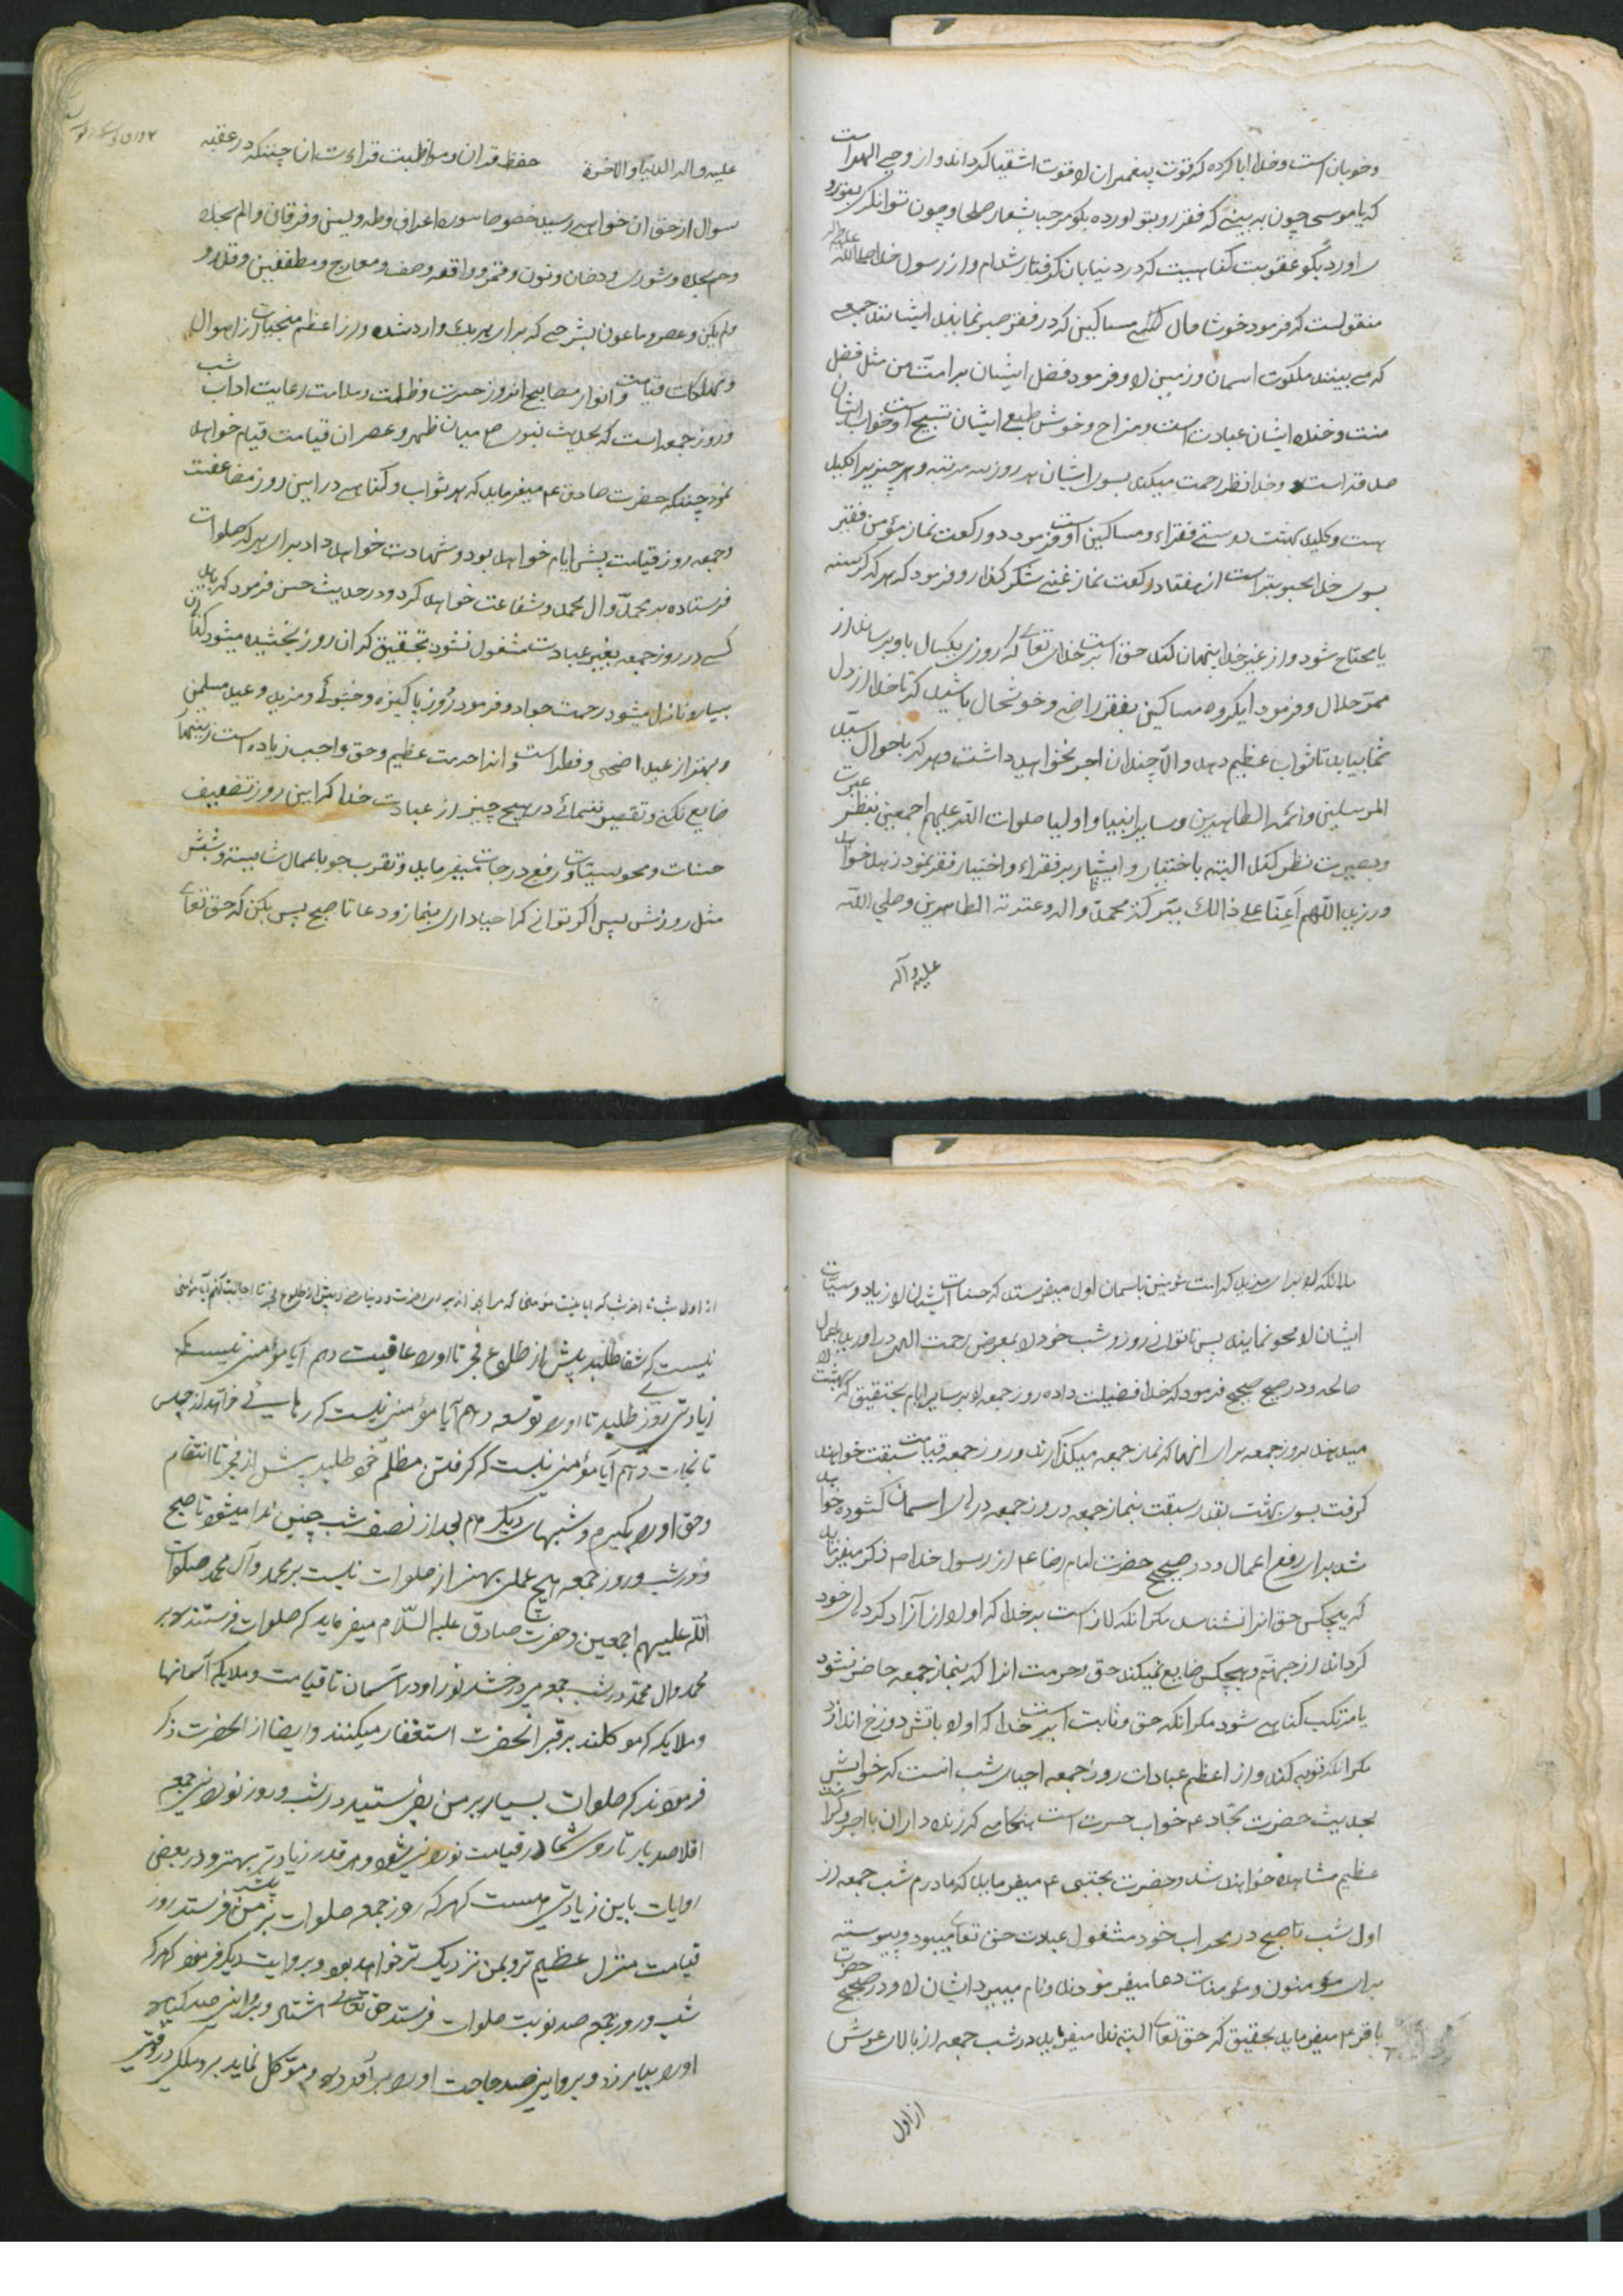 وخوبان است وخدا ابا کرده که قوت پیغمبران لا قوت اشقیا کرداند واز وحی الهی است
که یا موسی چون به بینی که فقر رو بتو اورده بکو مرحبا بشعار صلحا وچون توانکری بتو رو
اورد بکو عقوبت کناهیست که در دنیا بان کرفتار شدام واز رسول خدا صلی الله علیه واله
منقولست که فرمود خوشا حال مساکین که در فقر صبر نمایند ایشانند جمعی
که می بینند ملکوت اسمان وزمین لا وفرمود فضل ایشان بر امت من مثل فضل
منست وخنده ایشان عبادت است ومزاح وخوش طبعی ایشان تسبیح است وخواب ایشان
صدقه است وخدا نظر رحمت میکند بسوی ایشان هر روز سه مرتبه وهر چیز برا کلید
هست وکلید بهشت دوستی فقراء ومساکین است وفرمود دو رکعت نماز مؤمن فقیر
بسوی خدا محبوبتر است از هفتاد رکعت نماز غنی شکر کذار وفرمود که هر که کرسنه
یا محتاج شود واز غیر خدا پنهان کند حق است بر خدای تعالی که روزی یکسال باو برساند از
ممر حلال وفرمود ایکروه مساکین بفقر راضی وخوشحال باشید که تا خدا از دل
شما بیابد تا ثواب عظیم دهد والا چندان اجر نخواهید داشت وهر که باحوال سید
المرسلین وائمه الطاهرین وسایر انبیا واولیا صلوات الله علیهم اجمعین بنظر عبرت
وبصیرت نظر کند البته باختیار وایثار بر فقراء واختیار فقر نمودن بدل خواهد
ورزید اللهم اعنا علی ذالک ببرکة محمد واله وعترته الطاهرین وصلی الله
علیه وآله
علیه واله الدنیا والاخرة حفظ قران ومواظبت قراءت ان چنانکه در عقبه
سوال از حق ان خواهی رسید خصوصا سوره اعراف وطه ویس وفرقان والم سجده
وحم سجده وشوری ودخان ونون وقمر وواقعه وصف ومعارج ومطففین وقدر و
ولم یکن وعصر وماعون بشرحی که برای هر یک وارد شده واز اعظم منجیات از اهوال
ومهلکات قیامت وانوار مصابیح اندوز حسرت وظلمت وملامت رعایت اداب شب
وروز جمعه است که بحدیث نبوی ص میان ظهر وعصر ان قیامت قیام خواهد
نمود چنانکه حضرت صادق ع میفرماید که هر ثواب وکناهی در این روز مضاعفست
وجمعه روز قیامت پیش ایام خواهد بود وشهادت خواهد داد برای هر که صلوات
فرستاده بر محمد وال محمد وشفاعت خواهد کرد ودر حدیث حسن فرمود که باید
کسی در روز جمعه بغیر عبادت مشغول نشود بتحقیق که ان روز بخشیده میشود کناهان
بسیار ونازل میشود رحمت جواد وفرمود روز پاکیزه وخشوئی ومزید وعید مسلمین
وبهتر از عید اضحی وفطر است وانرا حرمت عظیم وحق واجب زیاده است زینهار
ضایع نکنی وتقصیر ننمائی در هیچ چیز از عبادت خدا که این روز تضعیف
حسنات ومحو سیئات ورفع درجات میفرماید وتقرب جو باعمال شایسته وشبش
مثل روزش پس اکر توانی که احیا داری بنماز ودعا تا صبح پس بکن که حق تعالی
ملائکه لا برای مزید کرامت مؤمنین باسمان اول میفرستد که حسنات ایشان لا زیاد وسیئات
ایشان لا محو نمایند پس تا توانی روز وشب خود لا بمعرض رحمت الهی در اور باعمال
صالحه ودر صحیح صحیح فرمود که خدا فضیلت داده روز جمعه لا بر سایر ایام بتحقیق که بهشت لا
میدهند بروز جمعه برای انها که نماز جمعه میکذارند وروز جمعه قیامت سبقت خواهند
کرفت بسوی بهشت بقدر سبقت بنماز جمعه ودر روز جمعه درهای اسمان کشوده خواهد
شد برای رفع اعمال ودر صحیح حضرت امام رضا ع از رسول خدا ص ذکر میفرماید
که هیچکس حق انرا نشناسد مکر انکه لازم است بر خدا که او لا از آزاد کردهای خود
کرداند از جهنم وهیچکس ضایع نمیکند حق وحرمت انرا که بنماز جمعه حاضر نشود
یا مرتکب کناهی شود مکر انکه حق وثابت است بر خدا که او لا باتش دوزخ اندازد
مکر انکه توبه کند واز اعظم عبادات روز جمعه احیای شب انست که خوابش
بحدیث حضرت سجاد ع خواب حسرت است هنکامی که زنده داران با اجر وکرامت
عظیم مشاهده خواهند شد وحضرت مجتبی ع میفرماید که مادرم شب جمعه از
اول شب تا صبح در محراب خود مشغول عبادت حق تعالی میبود وپیوسته
برای مؤمنون ومؤمنات دعا میفرمودند ونام میبرد ایشان لا ودر صحیح حضرت
باقر ع میفرماید بتحقیق که حق تعالی البته ندا میفرماید در شب جمعه از بالای عرش
از اول
از اول شب تا اخر شب که ایا نیست مؤمنی که مرا بخواند برای اخرت ودنیا خود پیش از طلوع فجر تا اجابت کنم آیا مؤمنی
نیست که شفا طلبد پیش از طلوع فجر تا اورا عافیت دهم آیا مؤمنی نیست که
زیادتی روزی طلبد تا اورا توسعه دهم آیا مؤمنی نیست که رهایی خواهد از حبس
تا نجات دهم آیا مؤمنی نیست که کرفتن مظلمه خود طلبد پیش از فجر تا انتقام
وحق اورا بکیرم وشبهای دیکر هم بعد از نصف شب چنین ندا میشود تا صبح
ودر شب وروز جمعه هیچ عملی بهتر از صلوات نیست بر محمد وآل محمد صلوات
الله علیهم اجمعین وحضرت صادق علیه السلام میفرماید که صلوات فرستنده بر
محمد وال محمد در شب جمعه میدرخشد نور او در آسمان تا قیامت وملایکه آسمانها
وملایکه که موکلند بر قبر انحضرت استغفار میکنند وایضا از انحضرت ذکر
فرمودند که صلوات بسیار بر من بفرستید در شب وروز نورانی جمعه
اقلا صد بار تا روی شما در قیامت نورانی شود وهر قدر زیادتر بهتر ودر بعضی
روایات باین زیادتی هست که هر که روز جمعه صلوات بر من بیشتر فرستد روز
قیامت منزل عظیم تر وبمن نزدیک تر خواهد بود وبروایت دیکر فرمود که هر که
شب وروز جمعه صد نوبت صلوات فرستد حق تعالی هشتاد وبروایتی صد کناه
اورا بیامرزد وبروایتی صد حاجت اورا برآورده وموکل نماید بر وملکی در قبر